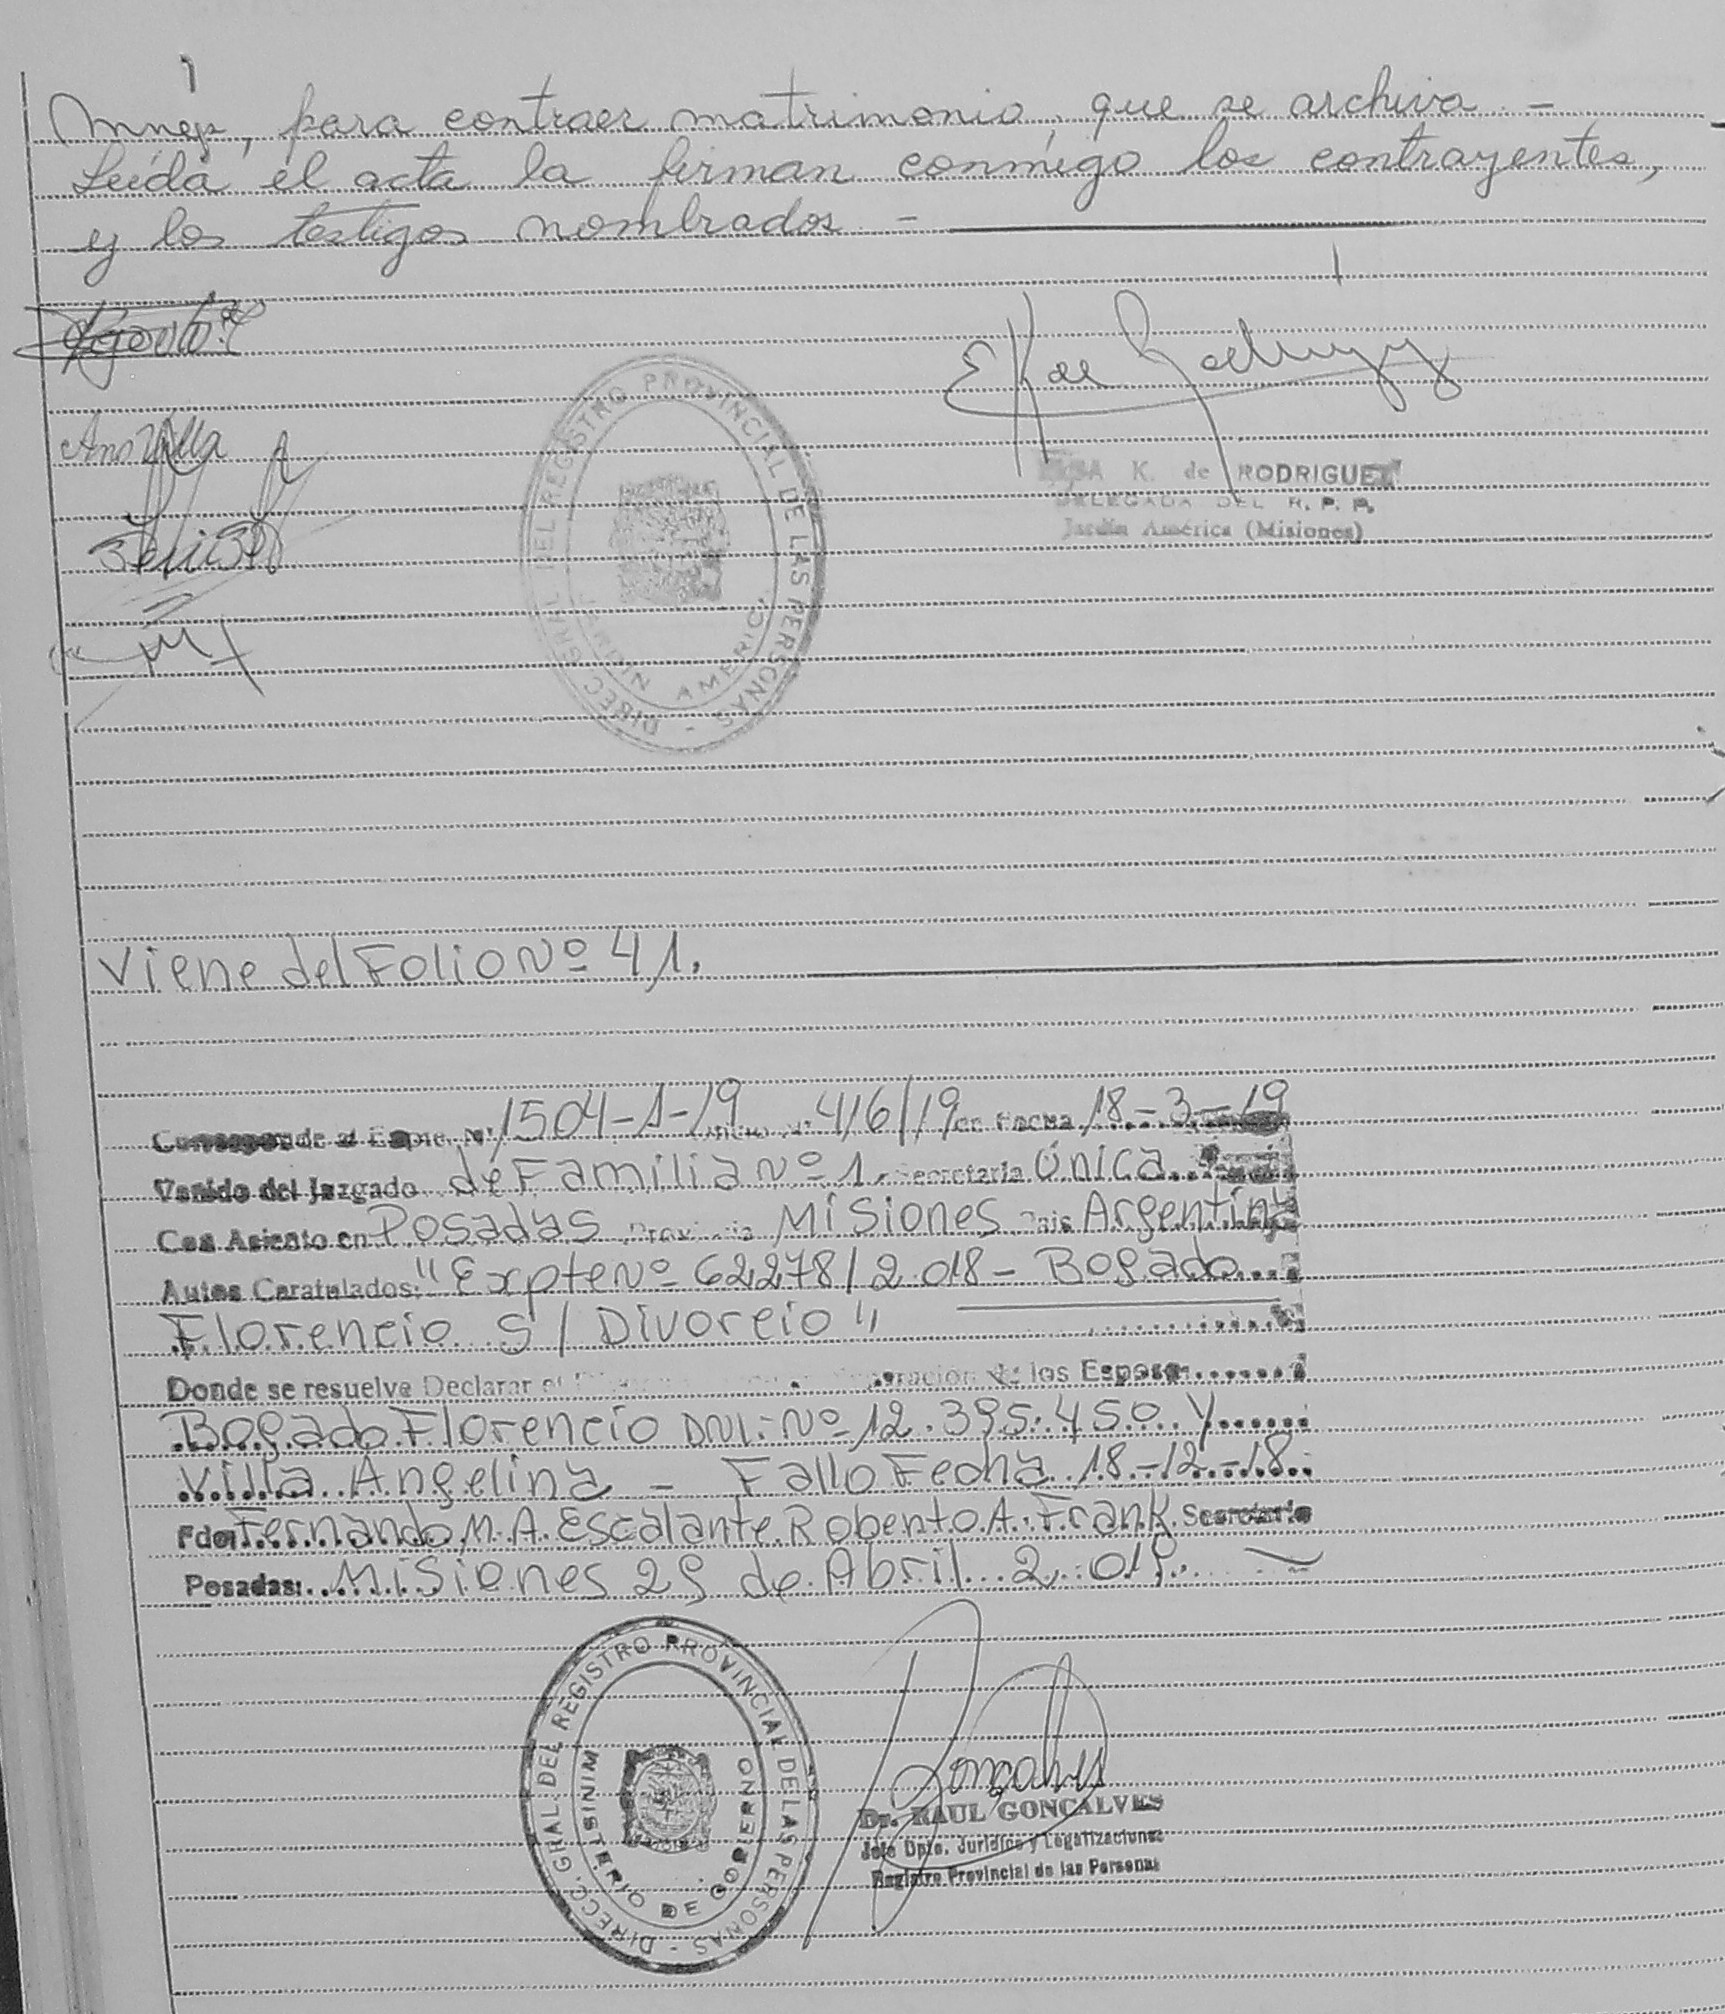 para contraer matrimonio, que se archiva. -
Leída el acta la firman conmigo los contrayentes,
y los testigos nombrados. -
E K de Rodriguez
K. de RODRIGUEZ
DELEGADA DEL R. P. P.
Jardín América (Misiones)
DIREC. GRAL DEL REGISTRO PROVINCIAL DE LAS PERSONAS -
JARDIN AMERICA
Viene del Folio Nº 41.
Corresponde al Expte. Nº 1504-1-19 Oficio Nº 416/19 de Fecha 18-3-19
Venido del Juzgado de Familia Nº 1. Secretaria Única
Con Asiento en Posadas Provincia Misiones Pais Argentina
Autos Caratulados: "Expte Nº 62278/2.018 - Bogado
Florencio S/ Divorcio"
Donde se resuelve Declarar el de los Esposos
Bogado Florencio DNI: Nº 12.395.450 y
Villa Angelina - Fallo Fecha 18-12-18.
Fdo: Fernando M. A. Escalante Roberto A. Frank Secretario
Posadas: Misiones 29 de Abril 2.019.
DIRECC. GRAL. DEL REGISTRO PROVINCIAL DE LAS PERSONAS -
MINISTERIO DE GOBIERNO
Gonçalves
Dr. RAUL GONCALVES
Jefe Dpto. Jurídico y Legalizaciones
Registro Provincial de las Personas